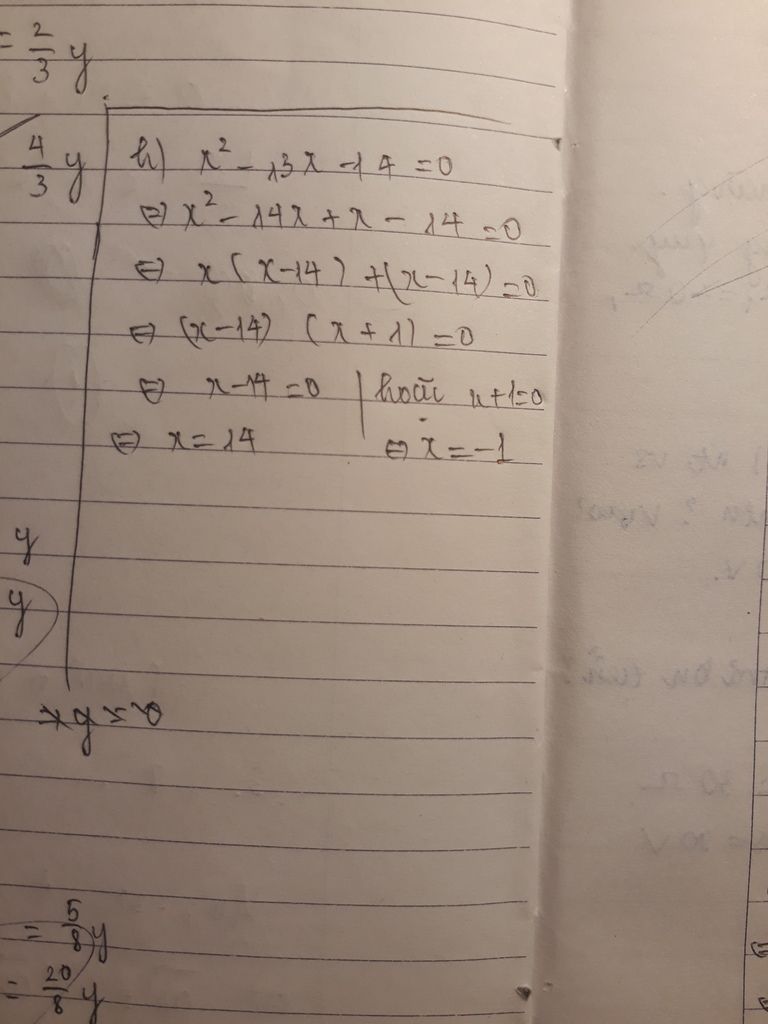 = 2/3 y
4/3 y
h) x² - 13x - 14 = 0
⇔ x² - 14x + x - 14 = 0
⇔ x(x-14) + (x-14) = 0
⇔ (x-14) (x+1) = 0
⇔ x-14 = 0 | hoặc x+1=0
⇔ x = 14 ⇔ x = -1
y
y
= 5/8 y
= 20/8 y